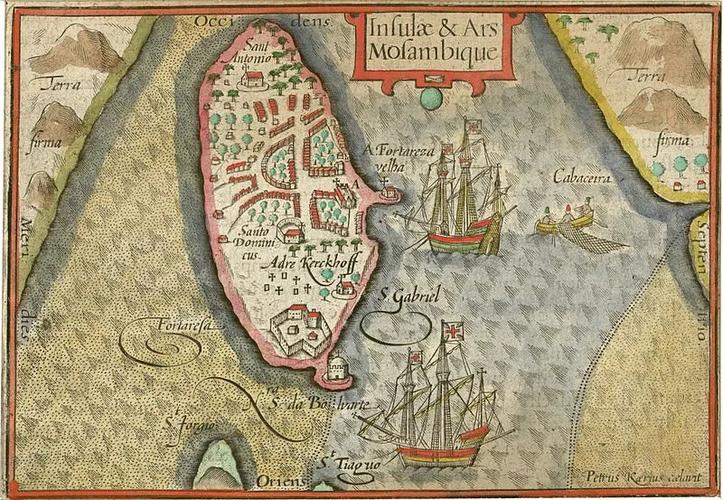 Occi dens.
Insulæ & Ars
Mosambique
Sant
Antonio
Terra
firma
Terra
firma
A. Fortareza
velha
Cabaceira
A
Santo
Domini
cus.
Adro Kerckhoff
Meri dies
Septen trio
S. Gabriel
Fortaresa
Nra S. da Bolwarte
St Jorgio
St Tiaguo
Oriens
Petrus Kærius cælavit